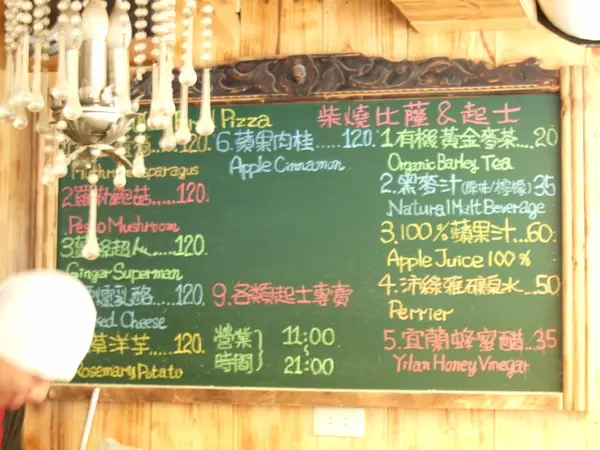 Pizza
柴燒比薩&起士
120.
Asparagus
2羅勒鮑菇......120.
Pesto Mushroom
3薑絲超人.....120.
Ginger Superman
燻乳酪......120.
Cheese
草洋芋.....120.
Rosemary Potato
6.蘋果肉桂.....120.
Apple Cinnamon
9.各類起士專賣
營業時間} 11:00
21:00
1.有機黃金麥茶...20
Organic Barley Tea
2.黑麥汁(原味/檸檬)35
Natural Malt Beverage
3.100%蘋果汁...60.
Apple Juice 100%
4.沛綠雅礦泉水...50
Perrier
5.宜蘭蜂蜜醋...35
Yilan Honey Vinegar